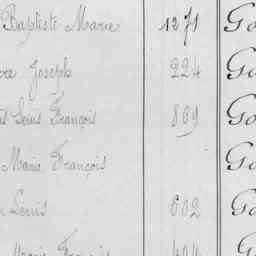 Baptiste Marie 1271 Go
re Joseph 224 Go
is Louis François 869 Go
Marie François Go
Louis 602 Go
Marie François 404 Go